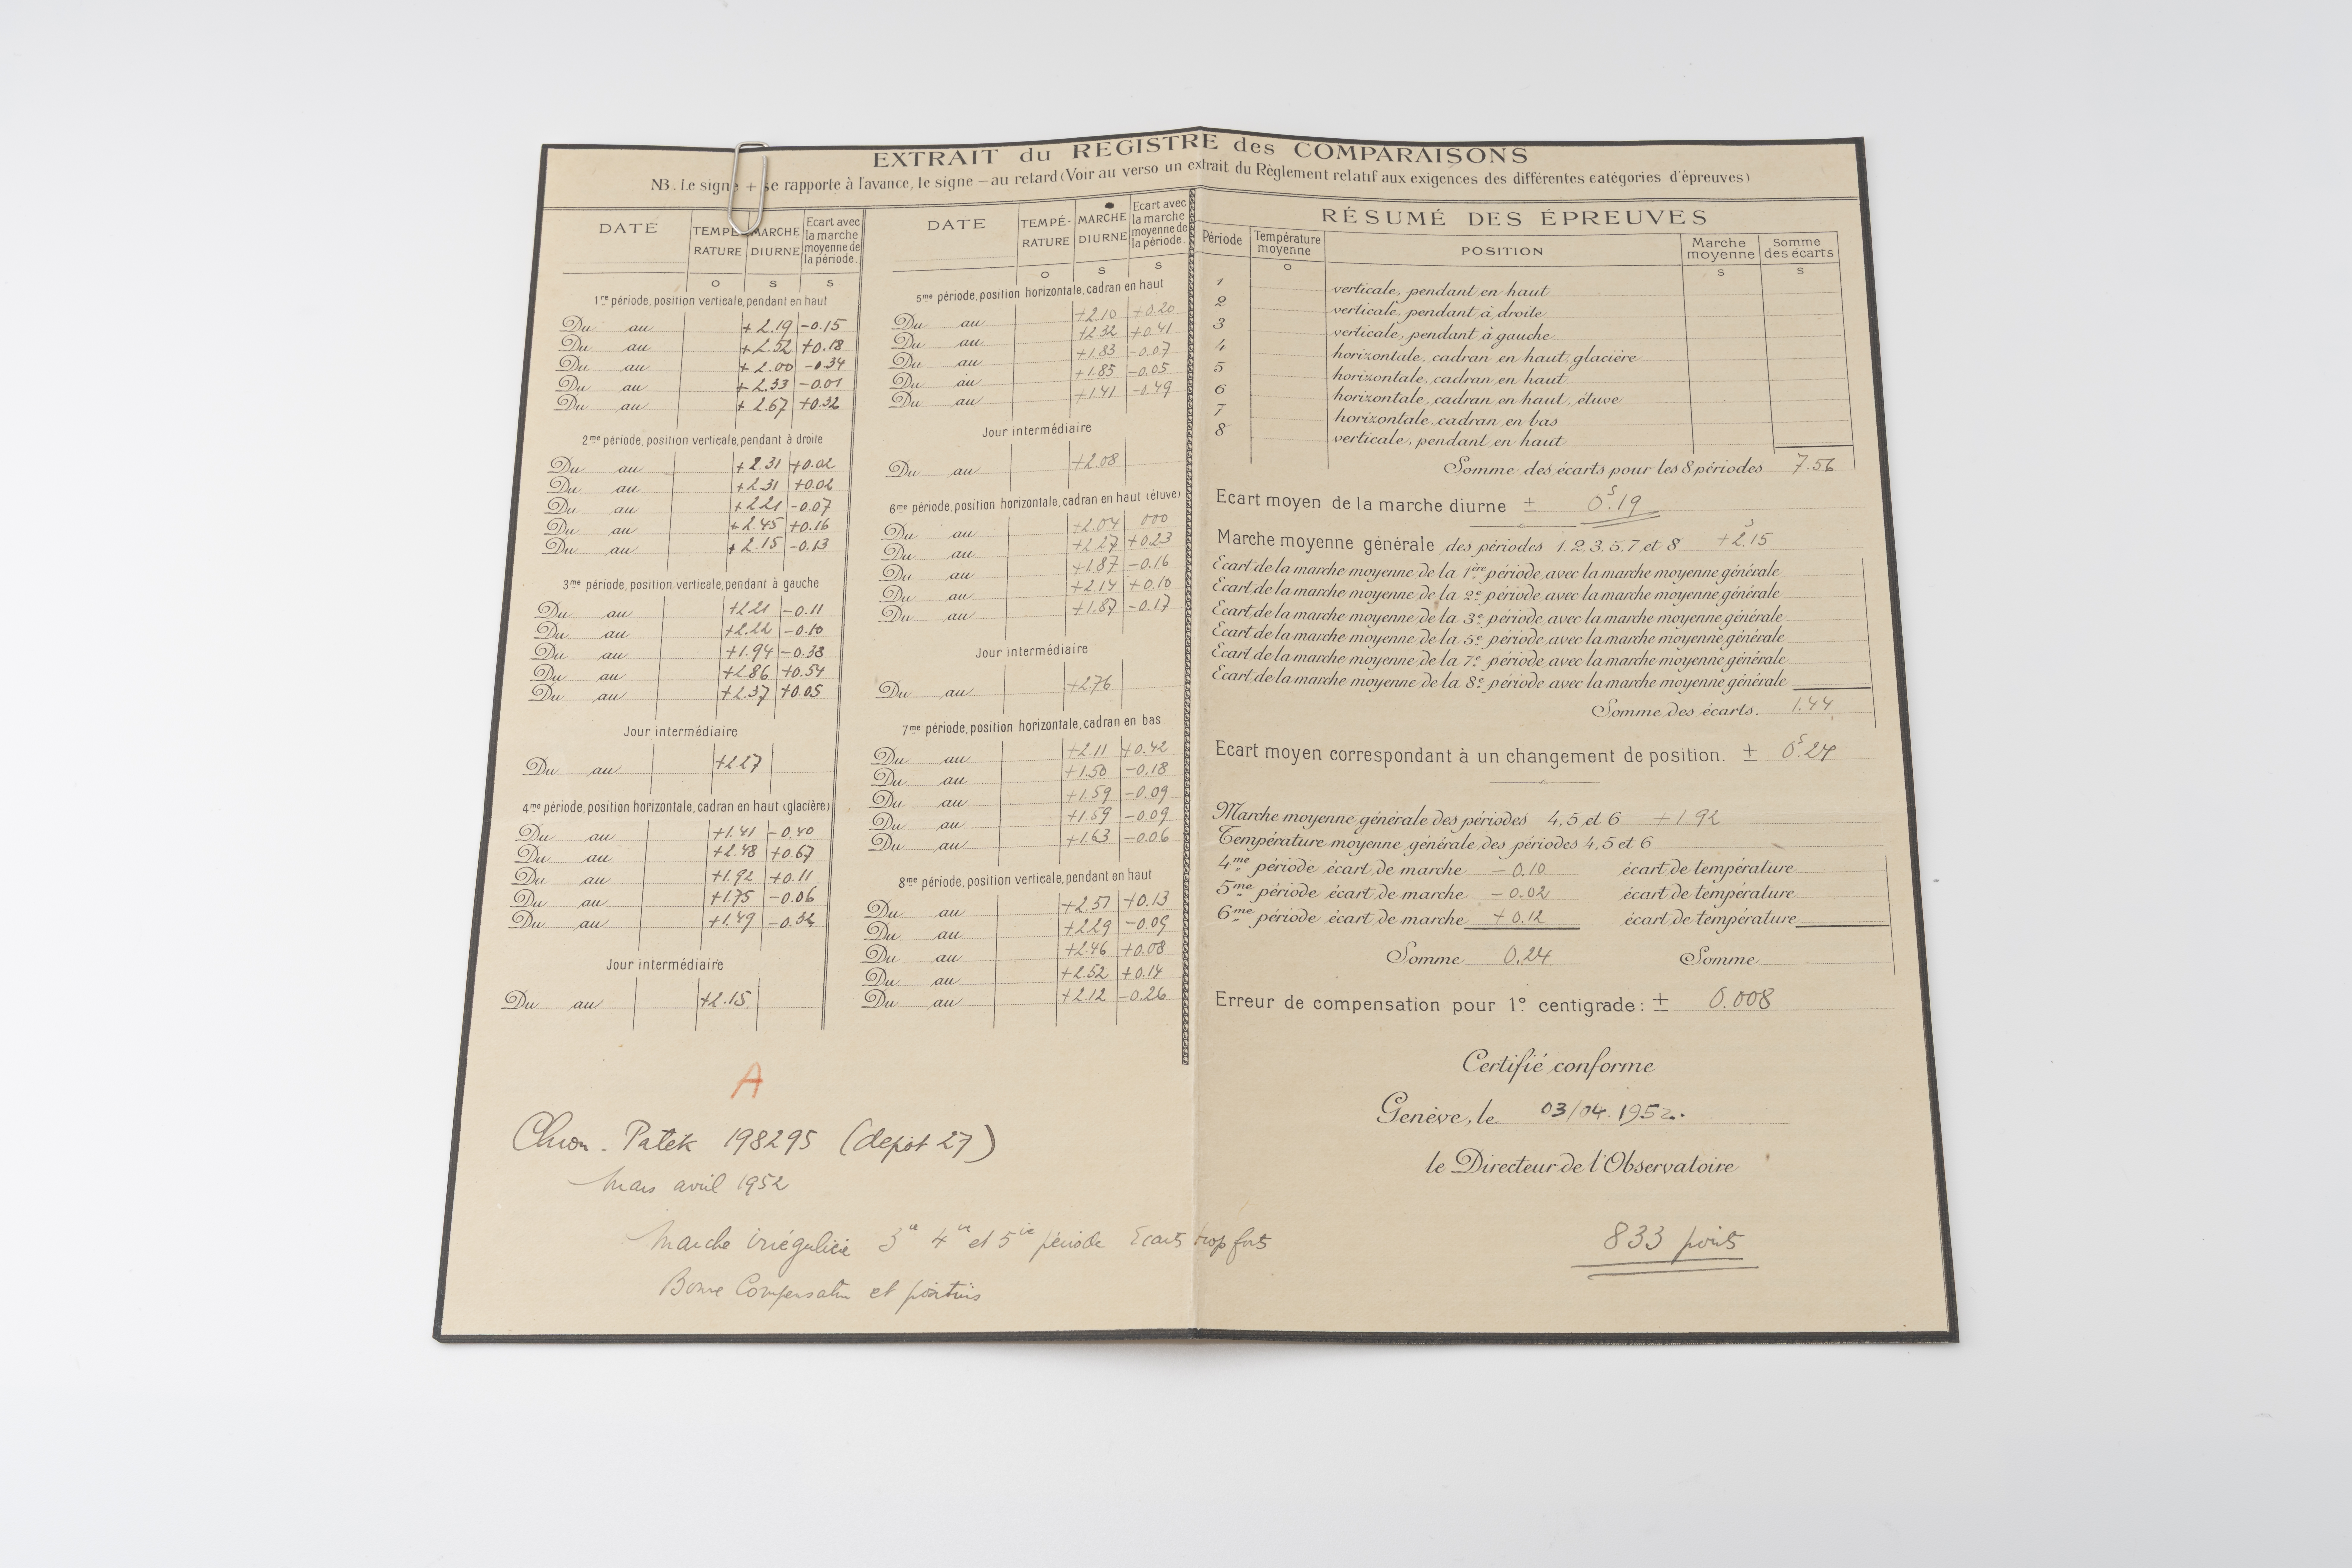 EXTRAIT du REGISTRE des COMPARAISONS
NB. Le signe + se rapporte à l'avance, le signe — au retard (Voir au verso un extrait du Règlement relatif aux exigences des différentes catégories d'épreuves)
DATE TEMPÉRATURE MARCHE DIURNE Ecart avec la marche moyenne de la période.
o s s
1re période, position verticale, pendant en haut
Du au +2.19 -0.15
Du au +2.52 +0.18
Du au +2.00 -0.34
Du au +2.33 -0.01
Du au +2.67 +0.32
2me période, position verticale, pendant à droite
Du au +2.31 +0.02
Du au +2.31 +0.02
Du au +2.21 -0.07
Du au +2.45 +0.16
Du au +2.15 -0.13
3me période, position verticale, pendant à gauche
Du au +2.21 -0.11
Du au +2.22 -0.10
Du au +1.94 -0.38
Du au +2.86 +0.54
Du au +2.37 +0.05
Jour intermédiaire
Du au +2.27
4me période, position horizontale, cadran en haut (glacière)
Du au +1.41 -0.40
Du au +2.48 +0.67
Du au +1.92 +0.11
Du au +1.75 -0.06
Du au +1.49 -0.32
Jour intermédiaire
Du au +2.15
DATE TEMPÉ-RATURE MARCHE DIURNE Ecart avec la marche moyenne de la période.
o s s
5me période, position horizontale, cadran en haut
Du au +2.10 +0.20
Du au +2.32 +0.41
Du au +1.83 -0.07
Du au +1.85 -0.05
Du au +1.41 -0.49
Jour intermédiaire
Du au +2.08
6me période, position horizontale, cadran en haut (étuve)
Du au +2.04 000
Du au +2.27 +0.23
Du au +1.87 -0.16
Du au +2.14 +0.10
Du au +1.87 -0.17
Jour intermédiaire
Du au +2.76
7me période, position horizontale, cadran en bas
Du au +2.11 +0.42
Du au +1.50 -0.18
Du au +1.59 -0.09
Du au +1.59 -0.09
Du au +1.63 -0.06
8me période, position verticale, pendant en haut
Du au +2.51 +0.13
Du au +2.29 -0.09
Du au +2.46 +0.08
Du au +2.52 +0.14
Du au +2.12 -0.26
RÉSUMÉ DES ÉPREUVES
Période Température moyenne POSITION Marche moyenne Somme des écarts
o s s
1 verticale, pendant en haut
2 verticale, pendant à droite
3 verticale, pendant à gauche
4 horizontale, cadran en haut, glacière
5 horizontale, cadran en haut
6 horizontale, cadran en haut, étuve
7 horizontale, cadran en bas
8 verticale, pendant en haut
Somme des écarts pour les 8 périodes 7.56
Ecart moyen de la marche diurne ± 0s.19
Marche moyenne générale des périodes 1, 2, 3, 5, 7 et 8 +2s.15
Ecart de la marche moyenne de la 1ère période avec la marche moyenne générale
Ecart de la marche moyenne de la 2e période avec la marche moyenne générale
Ecart de la marche moyenne de la 3e période avec la marche moyenne générale
Ecart de la marche moyenne de la 5e période avec la marche moyenne générale
Ecart de la marche moyenne de la 7e période avec la marche moyenne générale
Ecart de la marche moyenne de la 8e période avec la marche moyenne générale
Somme des écarts. 1.44
Ecart moyen correspondant à un changement de position. ± 0s.24
Marche moyenne générale des périodes 4, 5 et 6 +1.92
Température moyenne générale des périodes 4, 5 et 6
4me période écart de marche -0.10 écart de température
5me période écart de marche -0.02 écart de température
6me période écart de marche +0.12 écart de température
Somme 0.24 Somme
Erreur de compensation pour 1° centigrade: ± 0.008
Certifié conforme
Genève, le 03/04.1952.
le Directeur de l'Observatoire
833 points
A
Chron. Patek 198295 (depot 27)
Mars avril 1952
Marche irrégulière 3e 4e et 5e période Ecarts trop forts
Bonne Compensation et positions